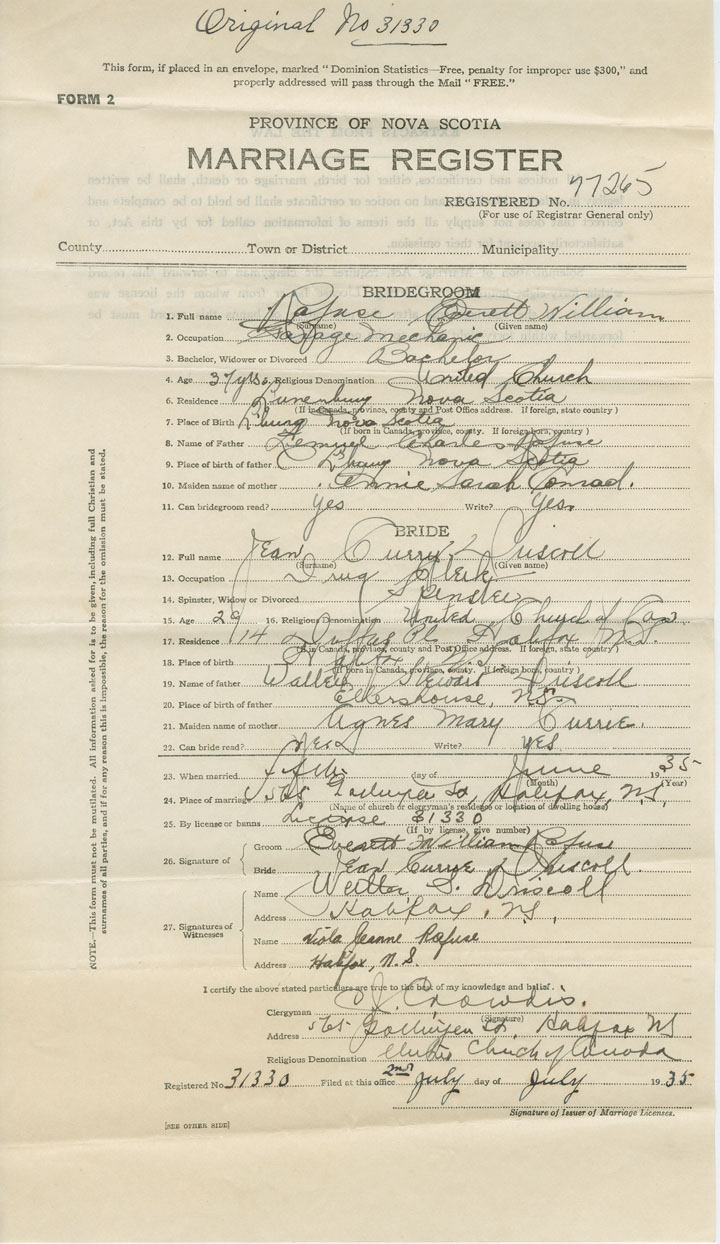 Original No 31330
This form, if placed in an envelope, marked "Dominion Statistics—Free, penalty for improper use $300," and
properly addressed will pass through the Mail "FREE."
FORM 2
PROVINCE OF NOVA SCOTIA
MARRIAGE REGISTER
REGISTERED No. 77265
(For use of Registrar General only)
County Town or District Municipality
BRIDEGROOM
1. Full name Rafuse Everett William
(Surname) (Given name)
2. Occupation Garage Mechanic
3. Bachelor, Widower or Divorced Bachelor
4. Age 37 yrs 5. Religious Denomination United Church
6. Residence Lunenburg Nova Scotia
(If in Canada, province, county and Post Office address. If foreign, state country)
7. Place of Birth L'burg Nova Scotia
(If born in Canada, province, county. If foreign born, country)
8. Name of Father Lemuel Charles Rafuse
9. Place of birth of father L'burg Nova Scotia
10. Maiden name of mother Annie Sarah Conrad.
11. Can bridegroom read? Yes Write? Yes
BRIDE
12. Full name Jean Currie Driscoll
(Surname) (Given name)
13. Occupation Drug Clerk
14. Spinster, Widow or Divorced Spinster
15. Age 29 16. Religious Denomination United Church of Can
17. Residence 14 Duffas Pl. Halifax N.S.
(If in Canada, province, county and Post Office address. If foreign, state country)
18. Place of birth Halifax N.S.
(If born in Canada, province, county. If foreign born, country)
19. Name of father Walter Steward Driscoll
20. Place of birth of father Ellershouse, N.S.
21. Maiden name of mother Agnes Mary Currie.
22. Can bride read? Yes Write? Yes
23. When married fifth day of June 1935
(Month) (Year)
24. Place of marriage 565 Gottingen St, Halifax, N.S.
(Name of church or clergyman's residence or location of dwelling house)
25. By license or banns License 31330
(If by license, give number)
26. Signature of Groom Everett William Rafuse
Bride Jean Currie Driscoll.
27. Signatures of Witnesses
Name Walter S. Driscoll
Address Halifax, N.S.,
Name Viola Jeanne Rafuse
Address Halifax, N.S.
I certify the above stated particulars are true to the best of my knowledge and belief.
Clergyman C. J. Crowdis.
(Signature)
Address 565 Gottingen St. Halifax NS
Religious Denomination United Church of Canada
Registered No. 31330 Filed at this office 2nd July day of July 1935
Signature of Issuer of Marriage Licenses.
[SEE OTHER SIDE]
NOTE.—This form must not be mutilated. All information asked for is to be given, including full Christian and
surnames of all parties, and if for any reason this is impossible, the reason for the omission must be stated.